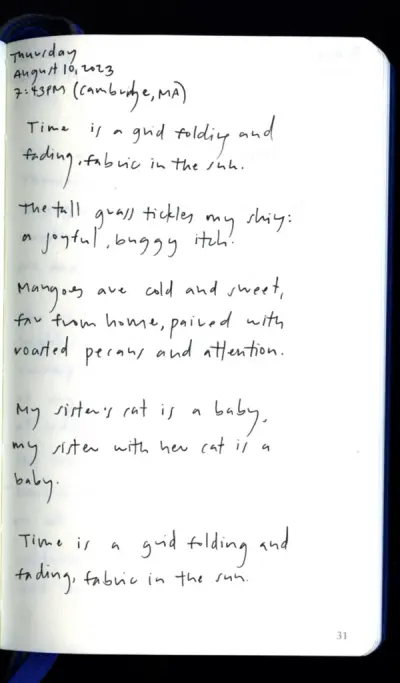 Thursday
August 10, 2023
7:43PM (Cambridge, MA)
Time is a grid folding and
fading, fabric in the sun.
The tall grass tickles my shins:
a joyful, buggy itch.
Mangoes are cold and sweet,
far from home, paired with
roasted pecans and attention.
My sister's cat is a baby,
my sister with her cat is a
baby.
Time is a grid folding and
fading, fabric in the sun.
31